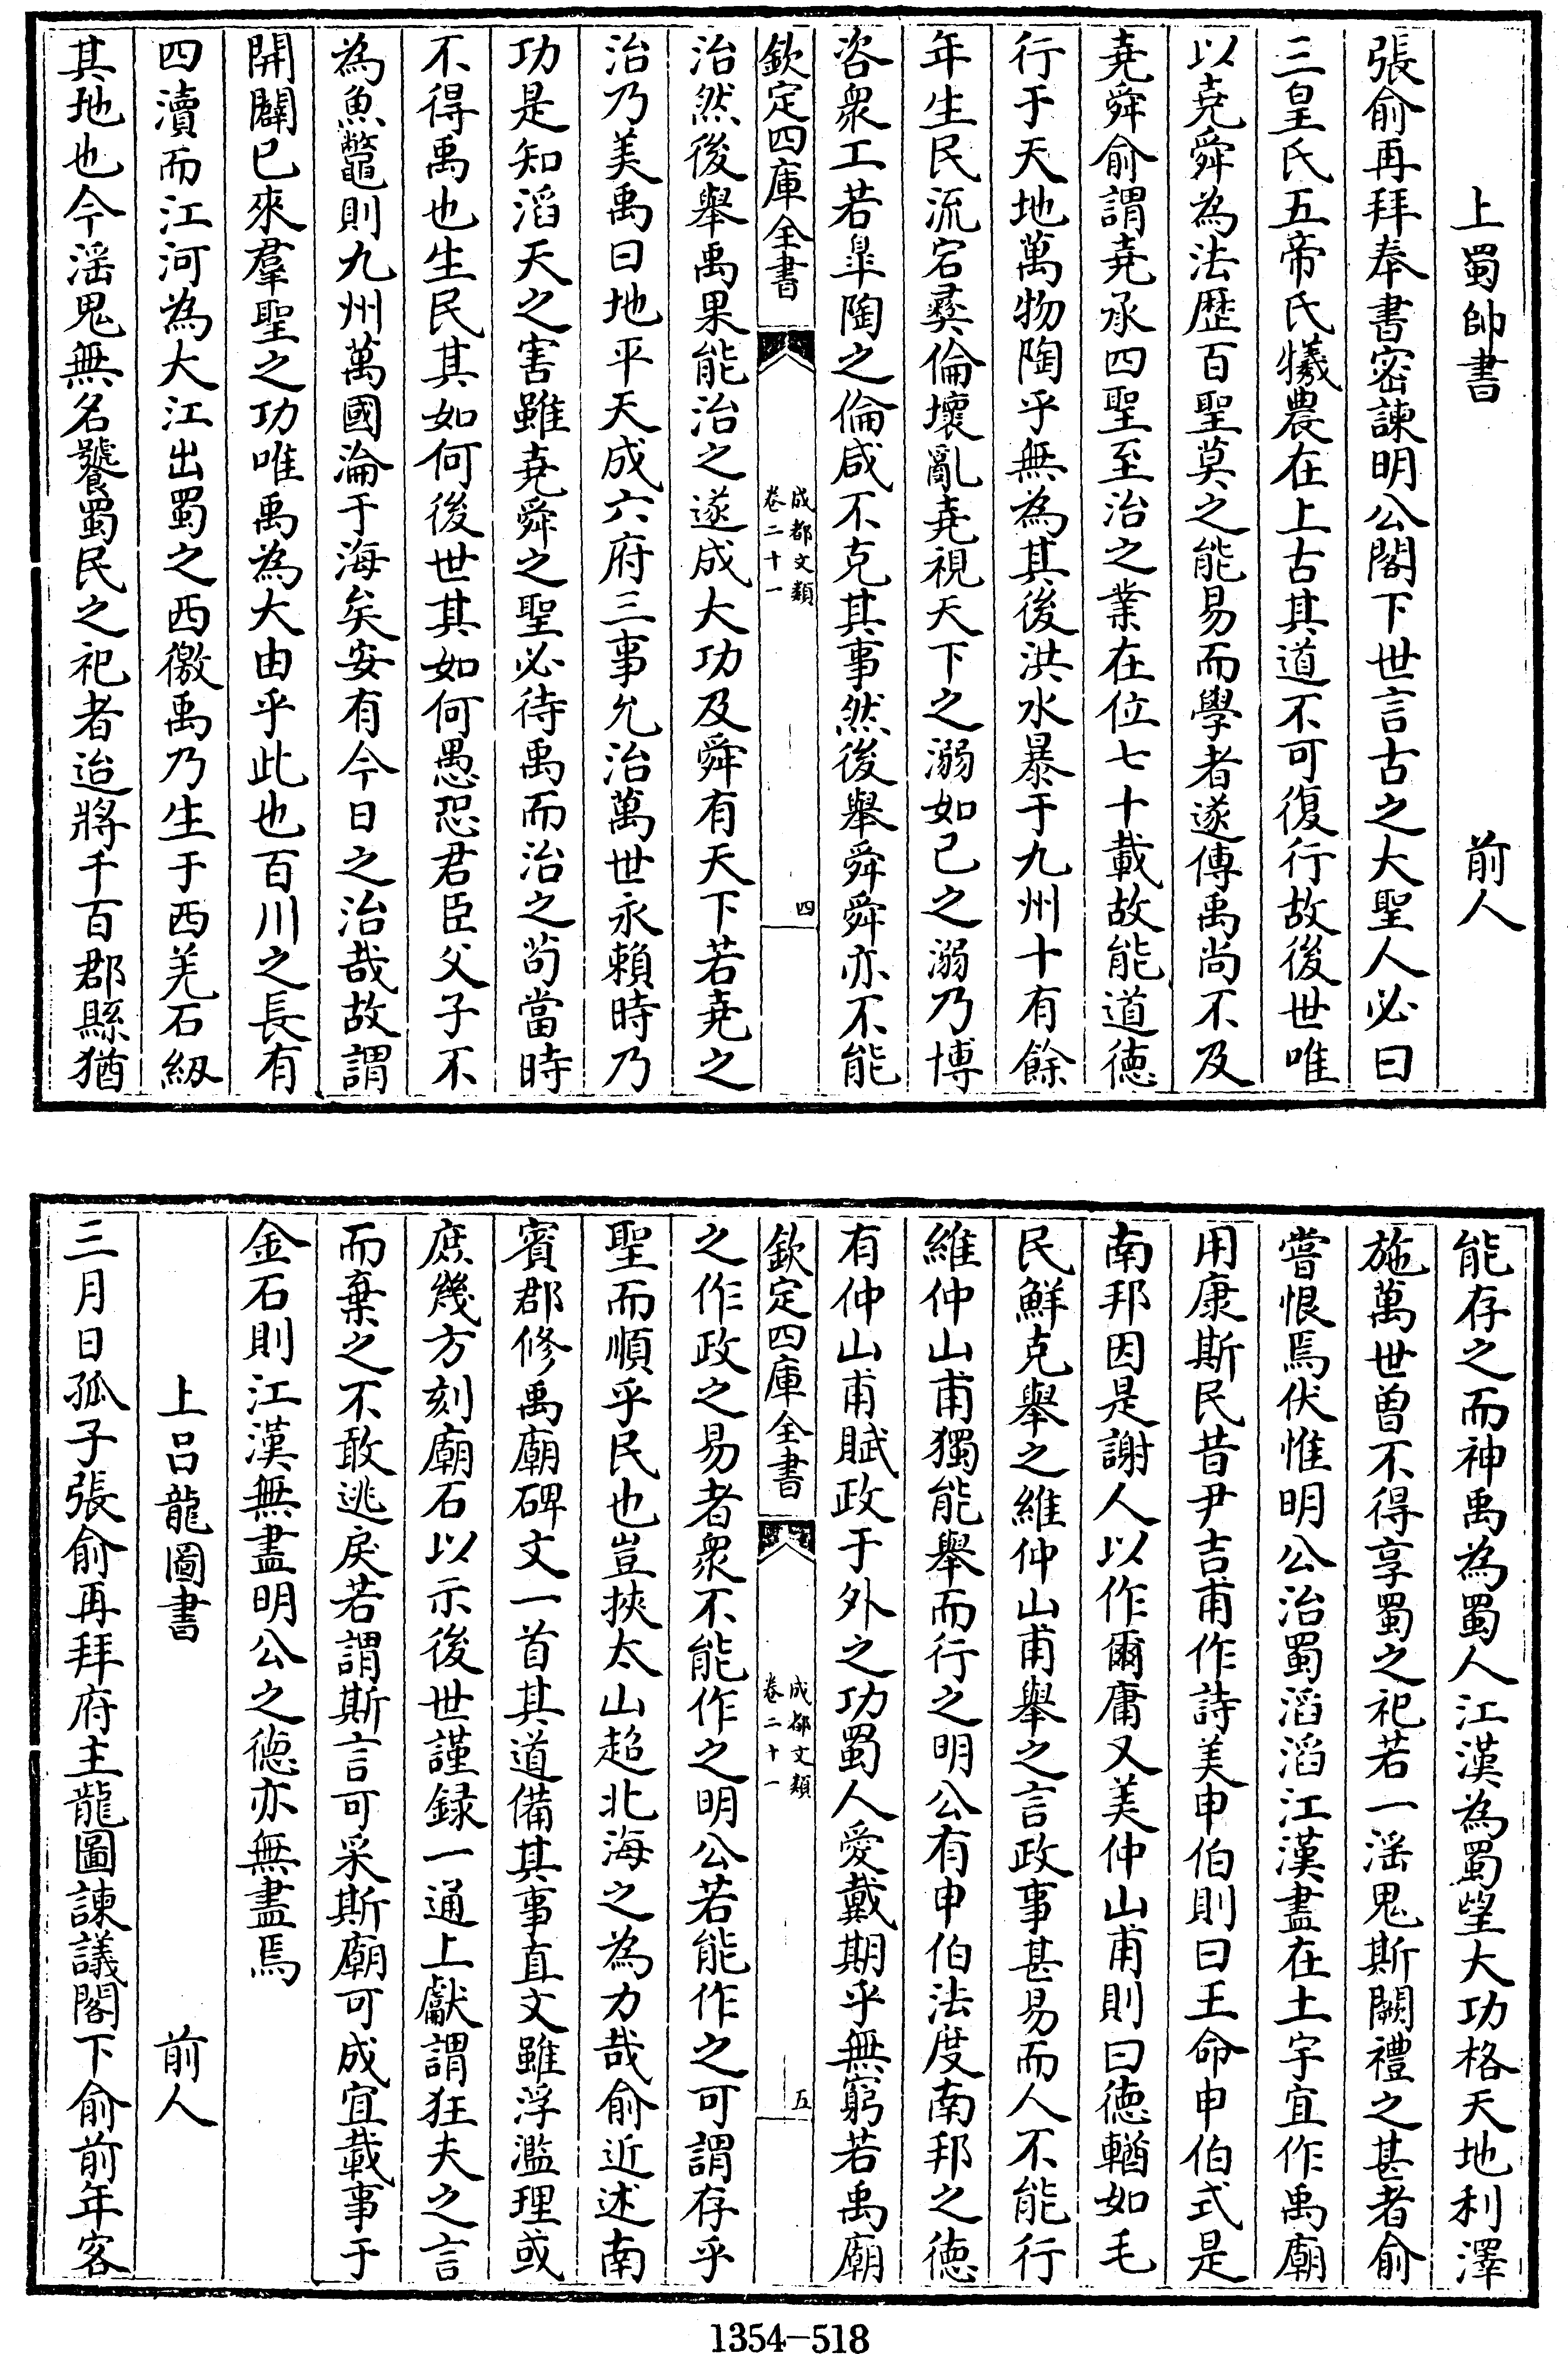 上蜀帥書　前人
張俞再拜奉書密諫明公閣下世言古之大聖人必曰
三皇氏五帝氏犧農在上古其道不可復行故後世唯
以堯舜為法歷百聖莫之能易而學者遂傳禹尚不及
堯舜俞謂堯承四聖至治之業在位七十載故能道德
行于天地萬物陶乎無為其後洪水暴于九州十有餘
年生民流宕彝倫壞亂堯視天下之溺如己之溺乃博
咨衆工若臯陶之倫咸不克其事然後舉舜舜亦不能
欽定四庫全書　成都文類卷二十一　四
治然後舉禹果能治之遂成大功及舜有天下若堯之
治乃美禹曰地平天成六府三事允治萬世永賴時乃
功是知滔天之害雖堯舜之聖必待禹而治之茍當時
不得禹也生民其如何後世其如何愚恐君臣父子不
為魚鼈則九州萬國淪于海矣安有今日之治哉故謂
開闢已來羣聖之功唯禹為大由乎此也百川之長有
四瀆而江河為大江出蜀之西徼禹乃生于西羌石紐
其地也今滛鬼無名饕蜀民之祀者迨將千百郡縣猶
能存之而神禹為蜀人江漢為蜀望大功格天地利澤
施萬世曽不得享蜀之祀若一滛鬼斯闕禮之甚者俞
嘗恨焉伏惟明公治蜀滔滔江漢盡在土宇宜作禹廟
用康斯民昔尹吉甫作詩美申伯則曰王命申伯式是
南邦因是謝人以作爾庸又美仲山甫則曰德輶如毛
民鮮克舉之維仲山甫舉之言政事甚易而人不能行
維仲山甫獨能舉而行之明公有申伯法度南邦之德
有仲山甫賦政于外之功蜀人愛戴期乎無窮若禹廟
欽定四庫全書　成都文類卷二十一　五
之作政之易者衆不能作之明公若能作之可謂存乎
聖而順乎民也豈挾太山超北海之為力哉俞近述南
賓郡修禹廟碑文一首其道備其事直文雖浮濫理或
庶幾方刻廟石以示後世謹録一通上獻謂狂夫之言
而棄之不敢逃戾若謂斯言可采斯廟可成宜載事于
金石則江漢無盡明公之德亦無盡焉
上呂龍圖書　前人
三月日孤子張俞再拜府主龍圖諫議閣下俞前年客
1354—518